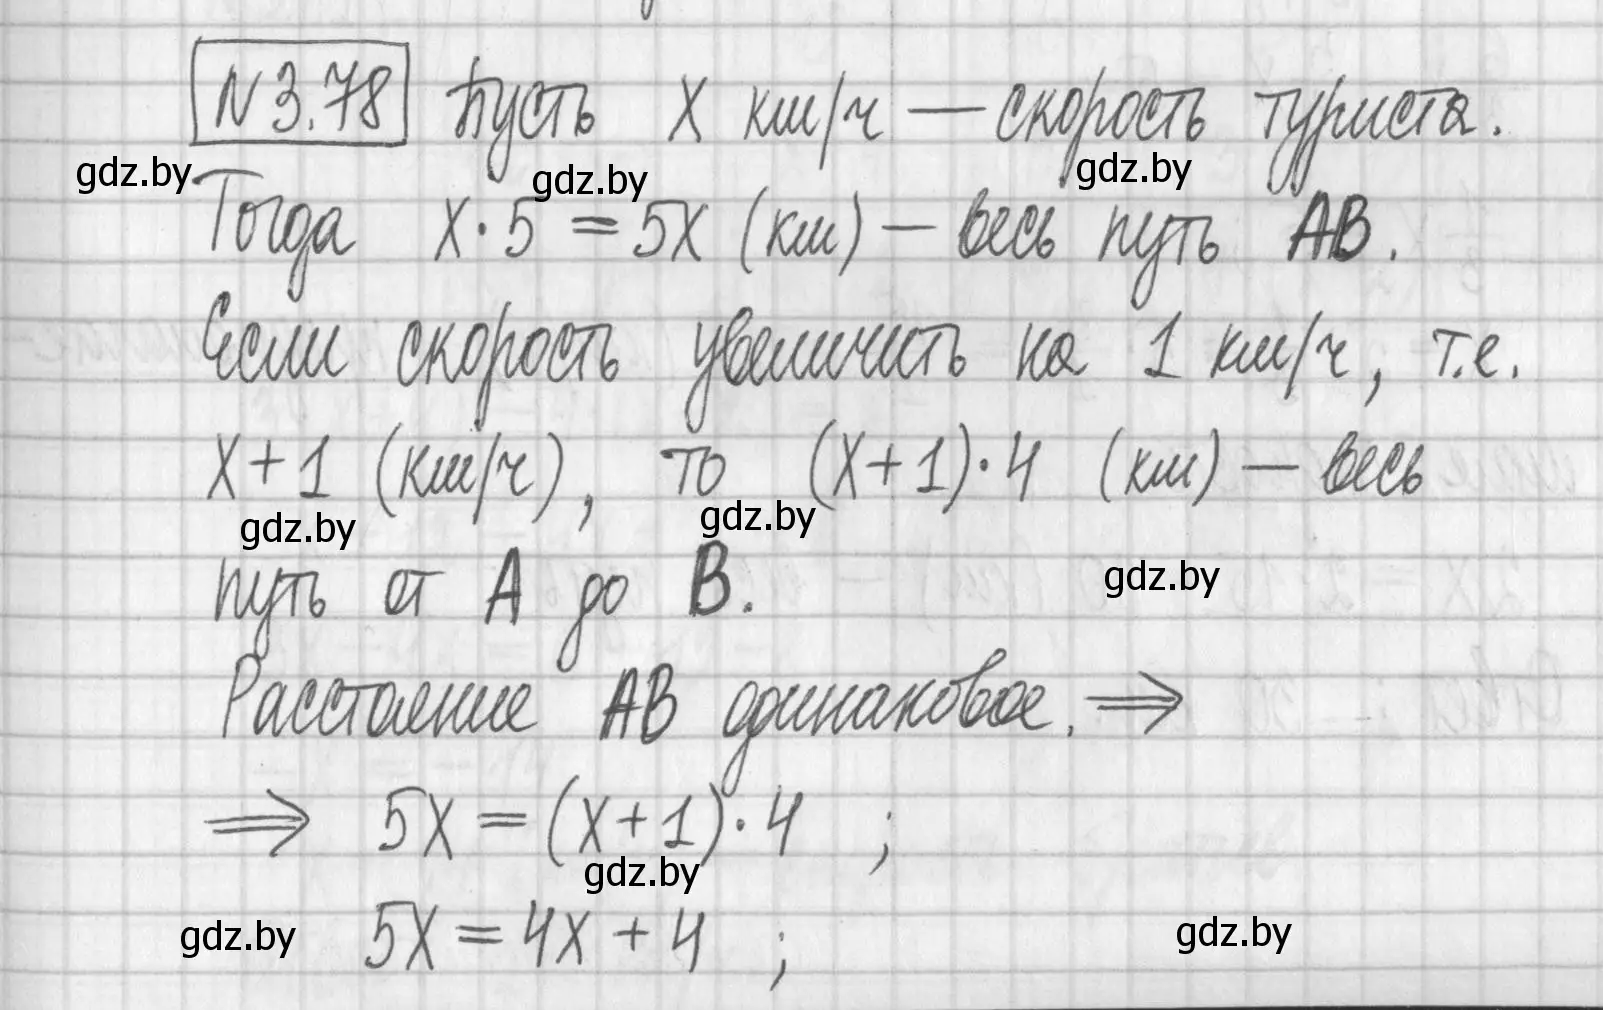 N 3.78 Пусть x км/ч — скорость туриста.
gdz.by gdz.by gdz.by
Тогда x · 5 = 5x (км) — весь путь AB.
Если скорость увеличить на 1 км/ч, т.е.
x + 1 (км/ч), то (x + 1) · 4 (км) — весь
gdz.by gdz.by
путь от A до B.
gdz.by
Расстояние AB одинаковое. ⇒
⇒ 5x = (x + 1) · 4 ;
gdz.by
5x = 4x + 4 ;
gdz.by gdz.by